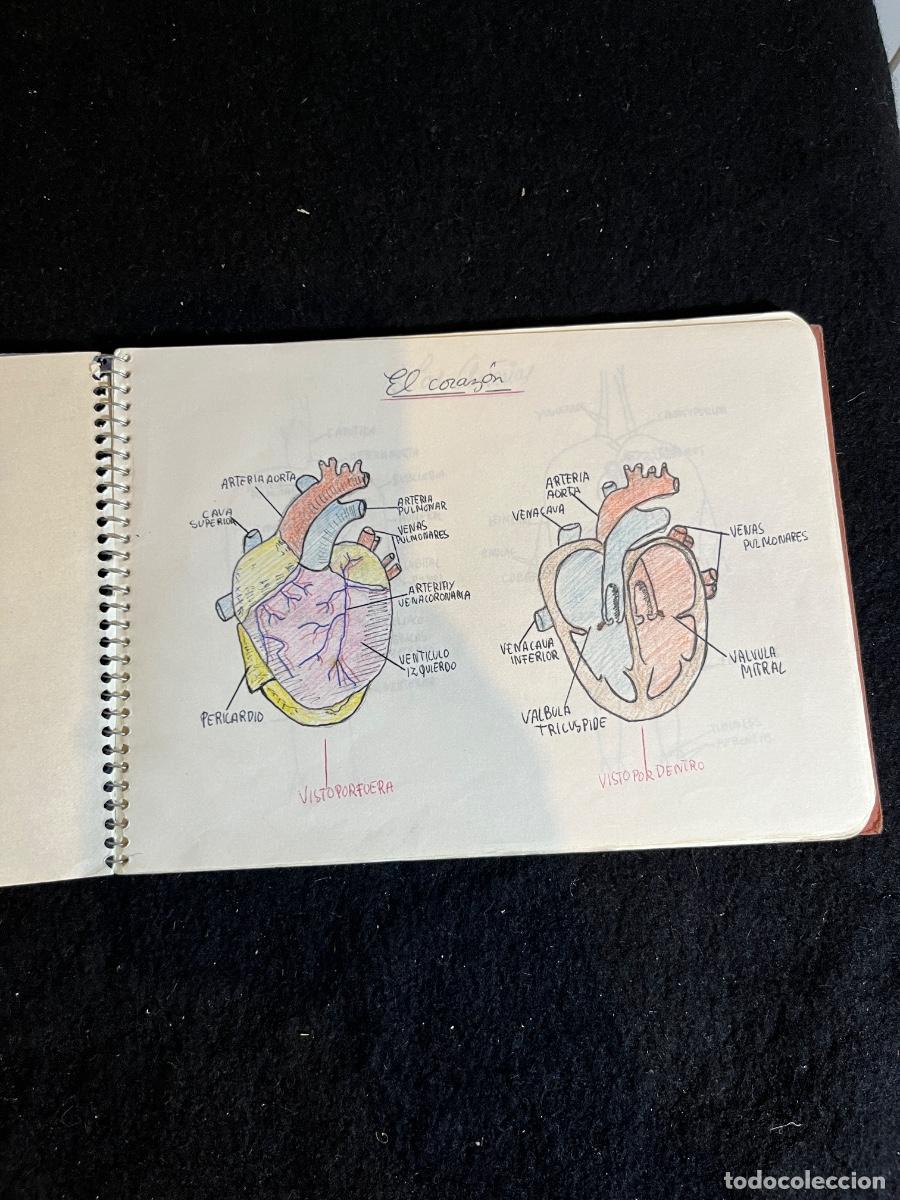 El corazón
ARTERIA AORTA
CAVA
SUPERIOR
ARTERIA
PULMONAR
VENAS
PULMONARES
ARTERIA Y
VENA CORONARIA
VENTICULO
IZQUIERDO
PERICARDIO
VISTO POR FUERA
ARTERIA
AORTA
VENA CAVA
VENAS
PULMONARES
VENA CAVA
INFERIOR
VALVULA
MITRAL
VALBULA
TRICUSPIDE
VISTO POR DENTRO
todocoleccion